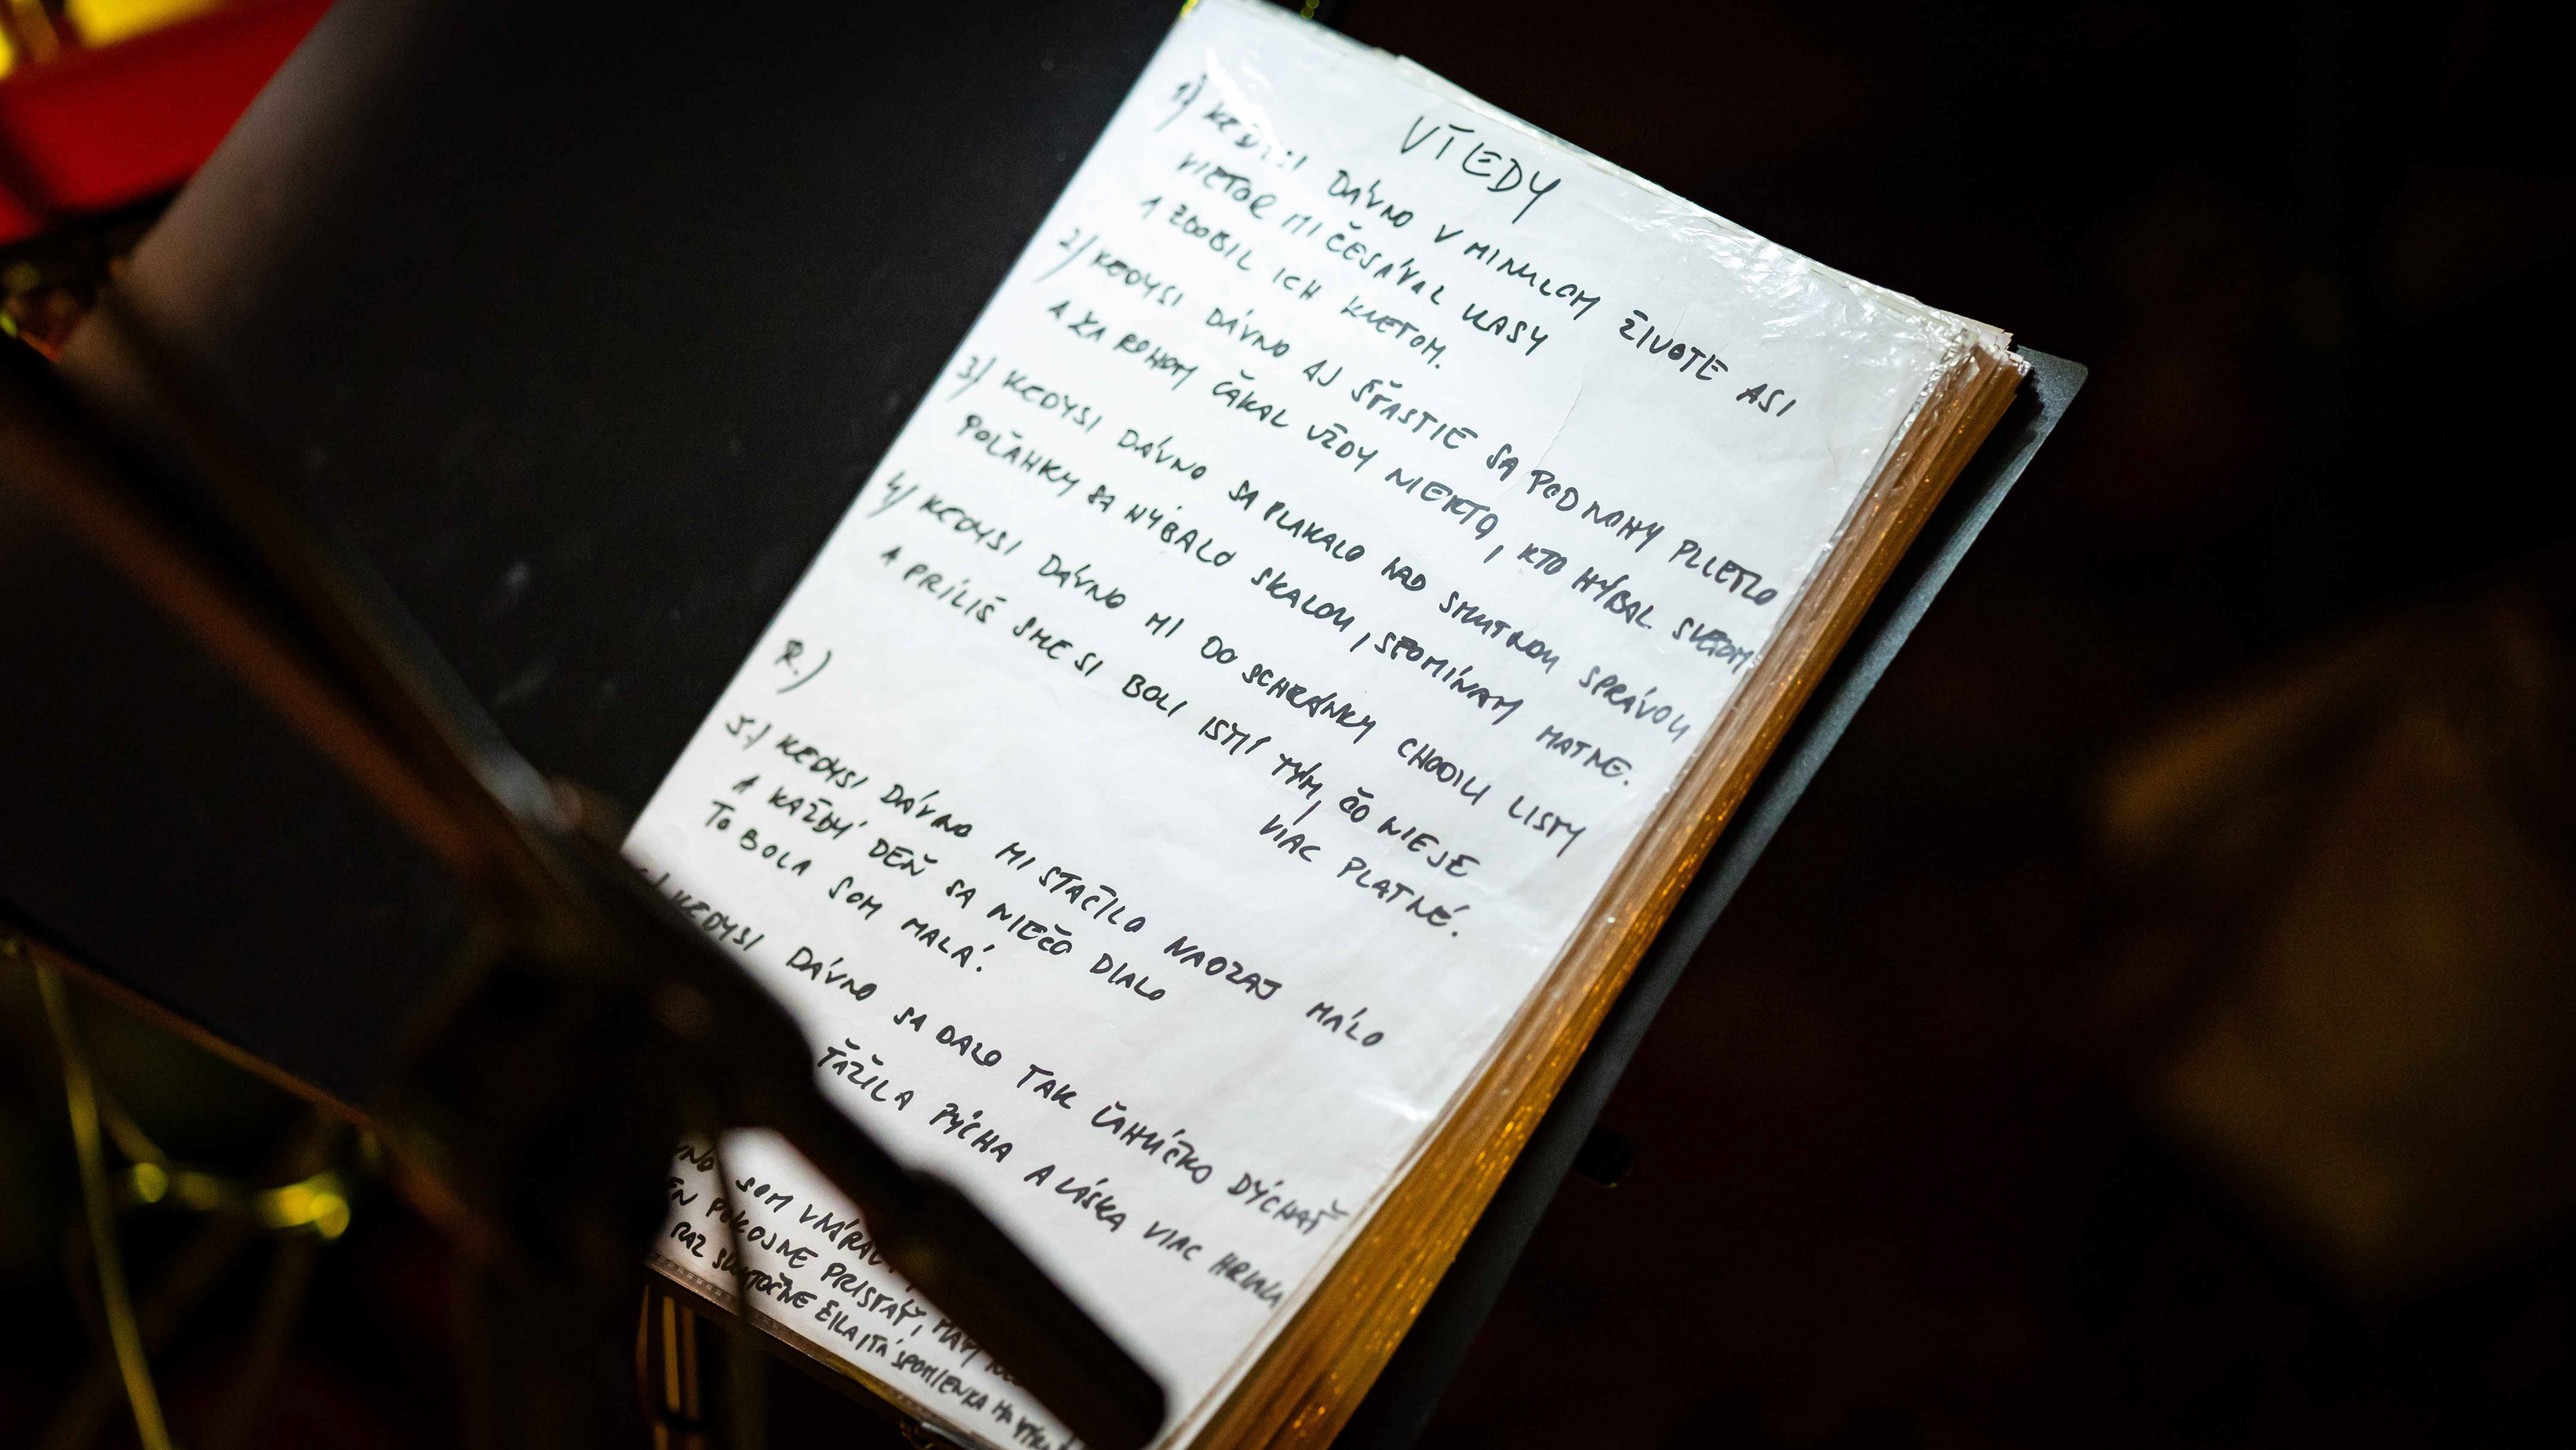 VTEDY
1) KEDYSI DÁVNO V MINULOM ŽIVOTE ASI
VIETOR MI ČESÁVAL VLASY
A ZDOBIL ICH KVETOM.
2) KEDYSI DÁVNO AJ ŠŤASTIE SA POD NOHY PLIETLO
A ZA ROHOM ČAKAL VŽDY NIEKTO, KTO HÝBAL SVETOM
3) KEDYSI DÁVNO SA PLAKALO NAD SMUTNOU SPRÁVOU
POĽAHKY SA HÝBALO SKALOU, SPOMÍNAM MATNE.
4) KEDYSI DÁVNO MI DO SCHRÁNKY CHODILI LISTY
A PRÍLIŠ SME SI BOLI ISTÍ TÝM, ČO NIEJE
VIAC PLATNÉ.
R.)
5.) KEDYSI DÁVNO MI STAČILO NAOZAJ MÁLO
A KAŽDÝ DEŇ SA NIEČO DIALO
TO BOLA SOM MALÁ.
KEDYSI DÁVNO SA DALO TAK ĽAHÚČKO DÝCHAŤ
ŤAŽILA PÝCHA A LÁSKA VIAC HRIALA
SOM
POKOJNE PRISTÁŤ,
RAZ SKUTOČNE SPOMIENKA NA